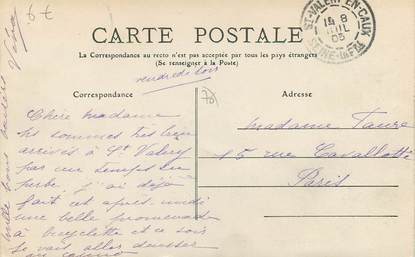 CARTE POSTALE
La Correspondance au recto n'est pas acceptée par tous les pays étrangers
(Se renseigner à la Poste)
ST-VALERY-EN-CAUX
8
JUIL
05
SEINE-INFRE
vendredi soir
Correspondance
Adresse
Chère Madame
ns sommes très bien
arrivés à St Valery
par un temps
superbe, j'ai déjà
fait cet après-midi
une belle promenade
à bicyclette et ce soir
je vais aller danser
au casino
mille bons baisers
Madame Faure
15 rue Cavallotti
Paris